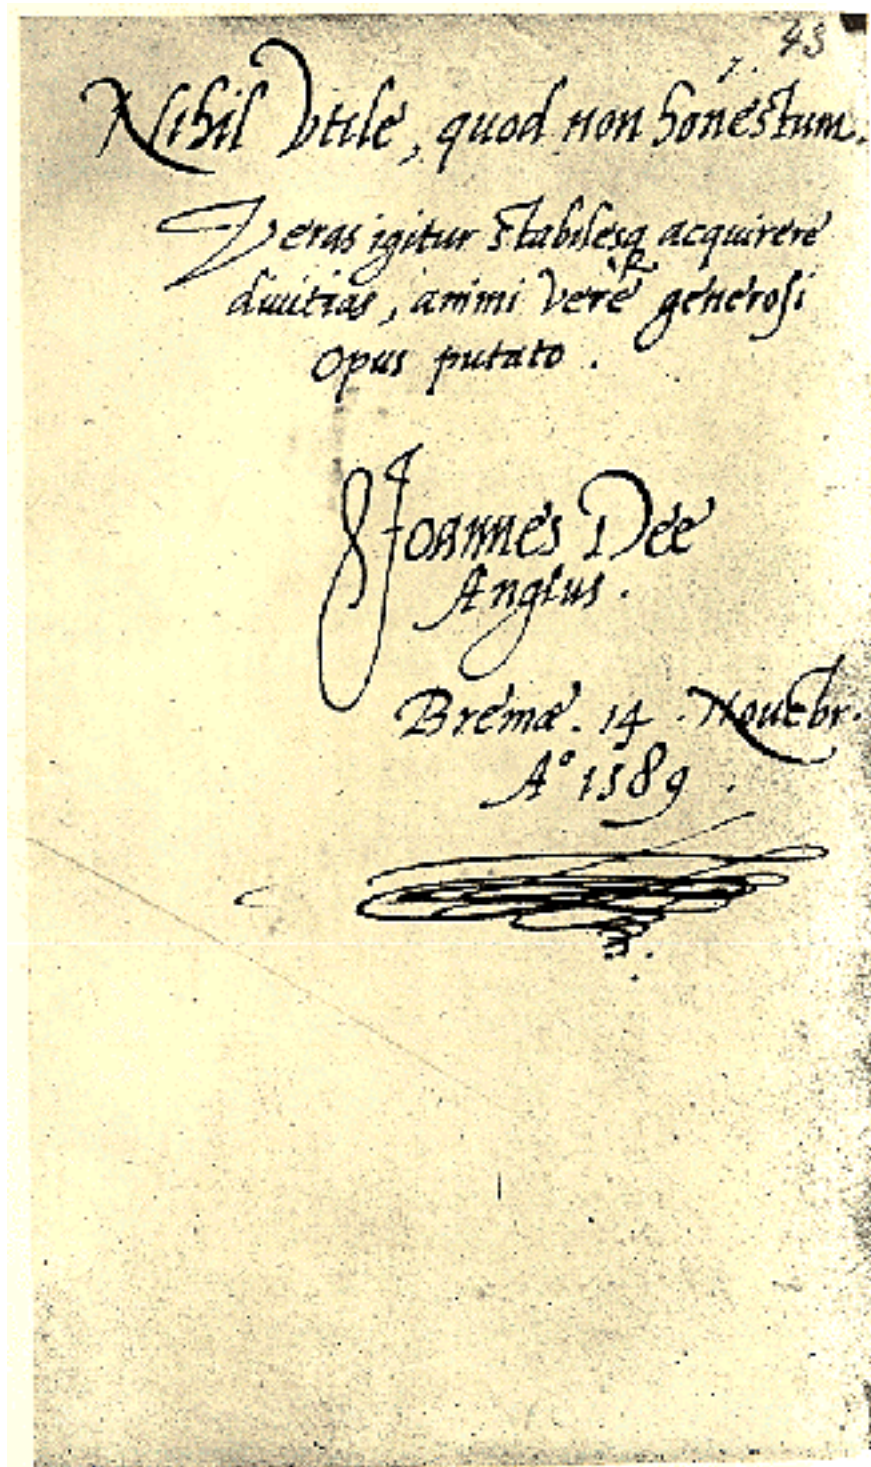 43
Nihil Vtile, quod non honestum.
Veras igitur stabilesq acquirere
diuitias, animi vere generosi
opus putato.
Joannes Dee
Anglus.
Bremæ. 14. Nouēbr.
A° 1589.